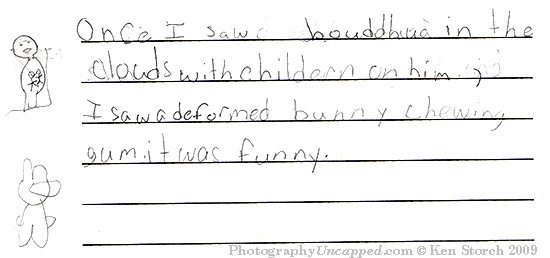 Once I saw a bouddhua in the
clouds with childern on him,
I saw a deformed bunny chewing
gum. it was funny.
PhotographyUncapped.com © Ken Storch 2009